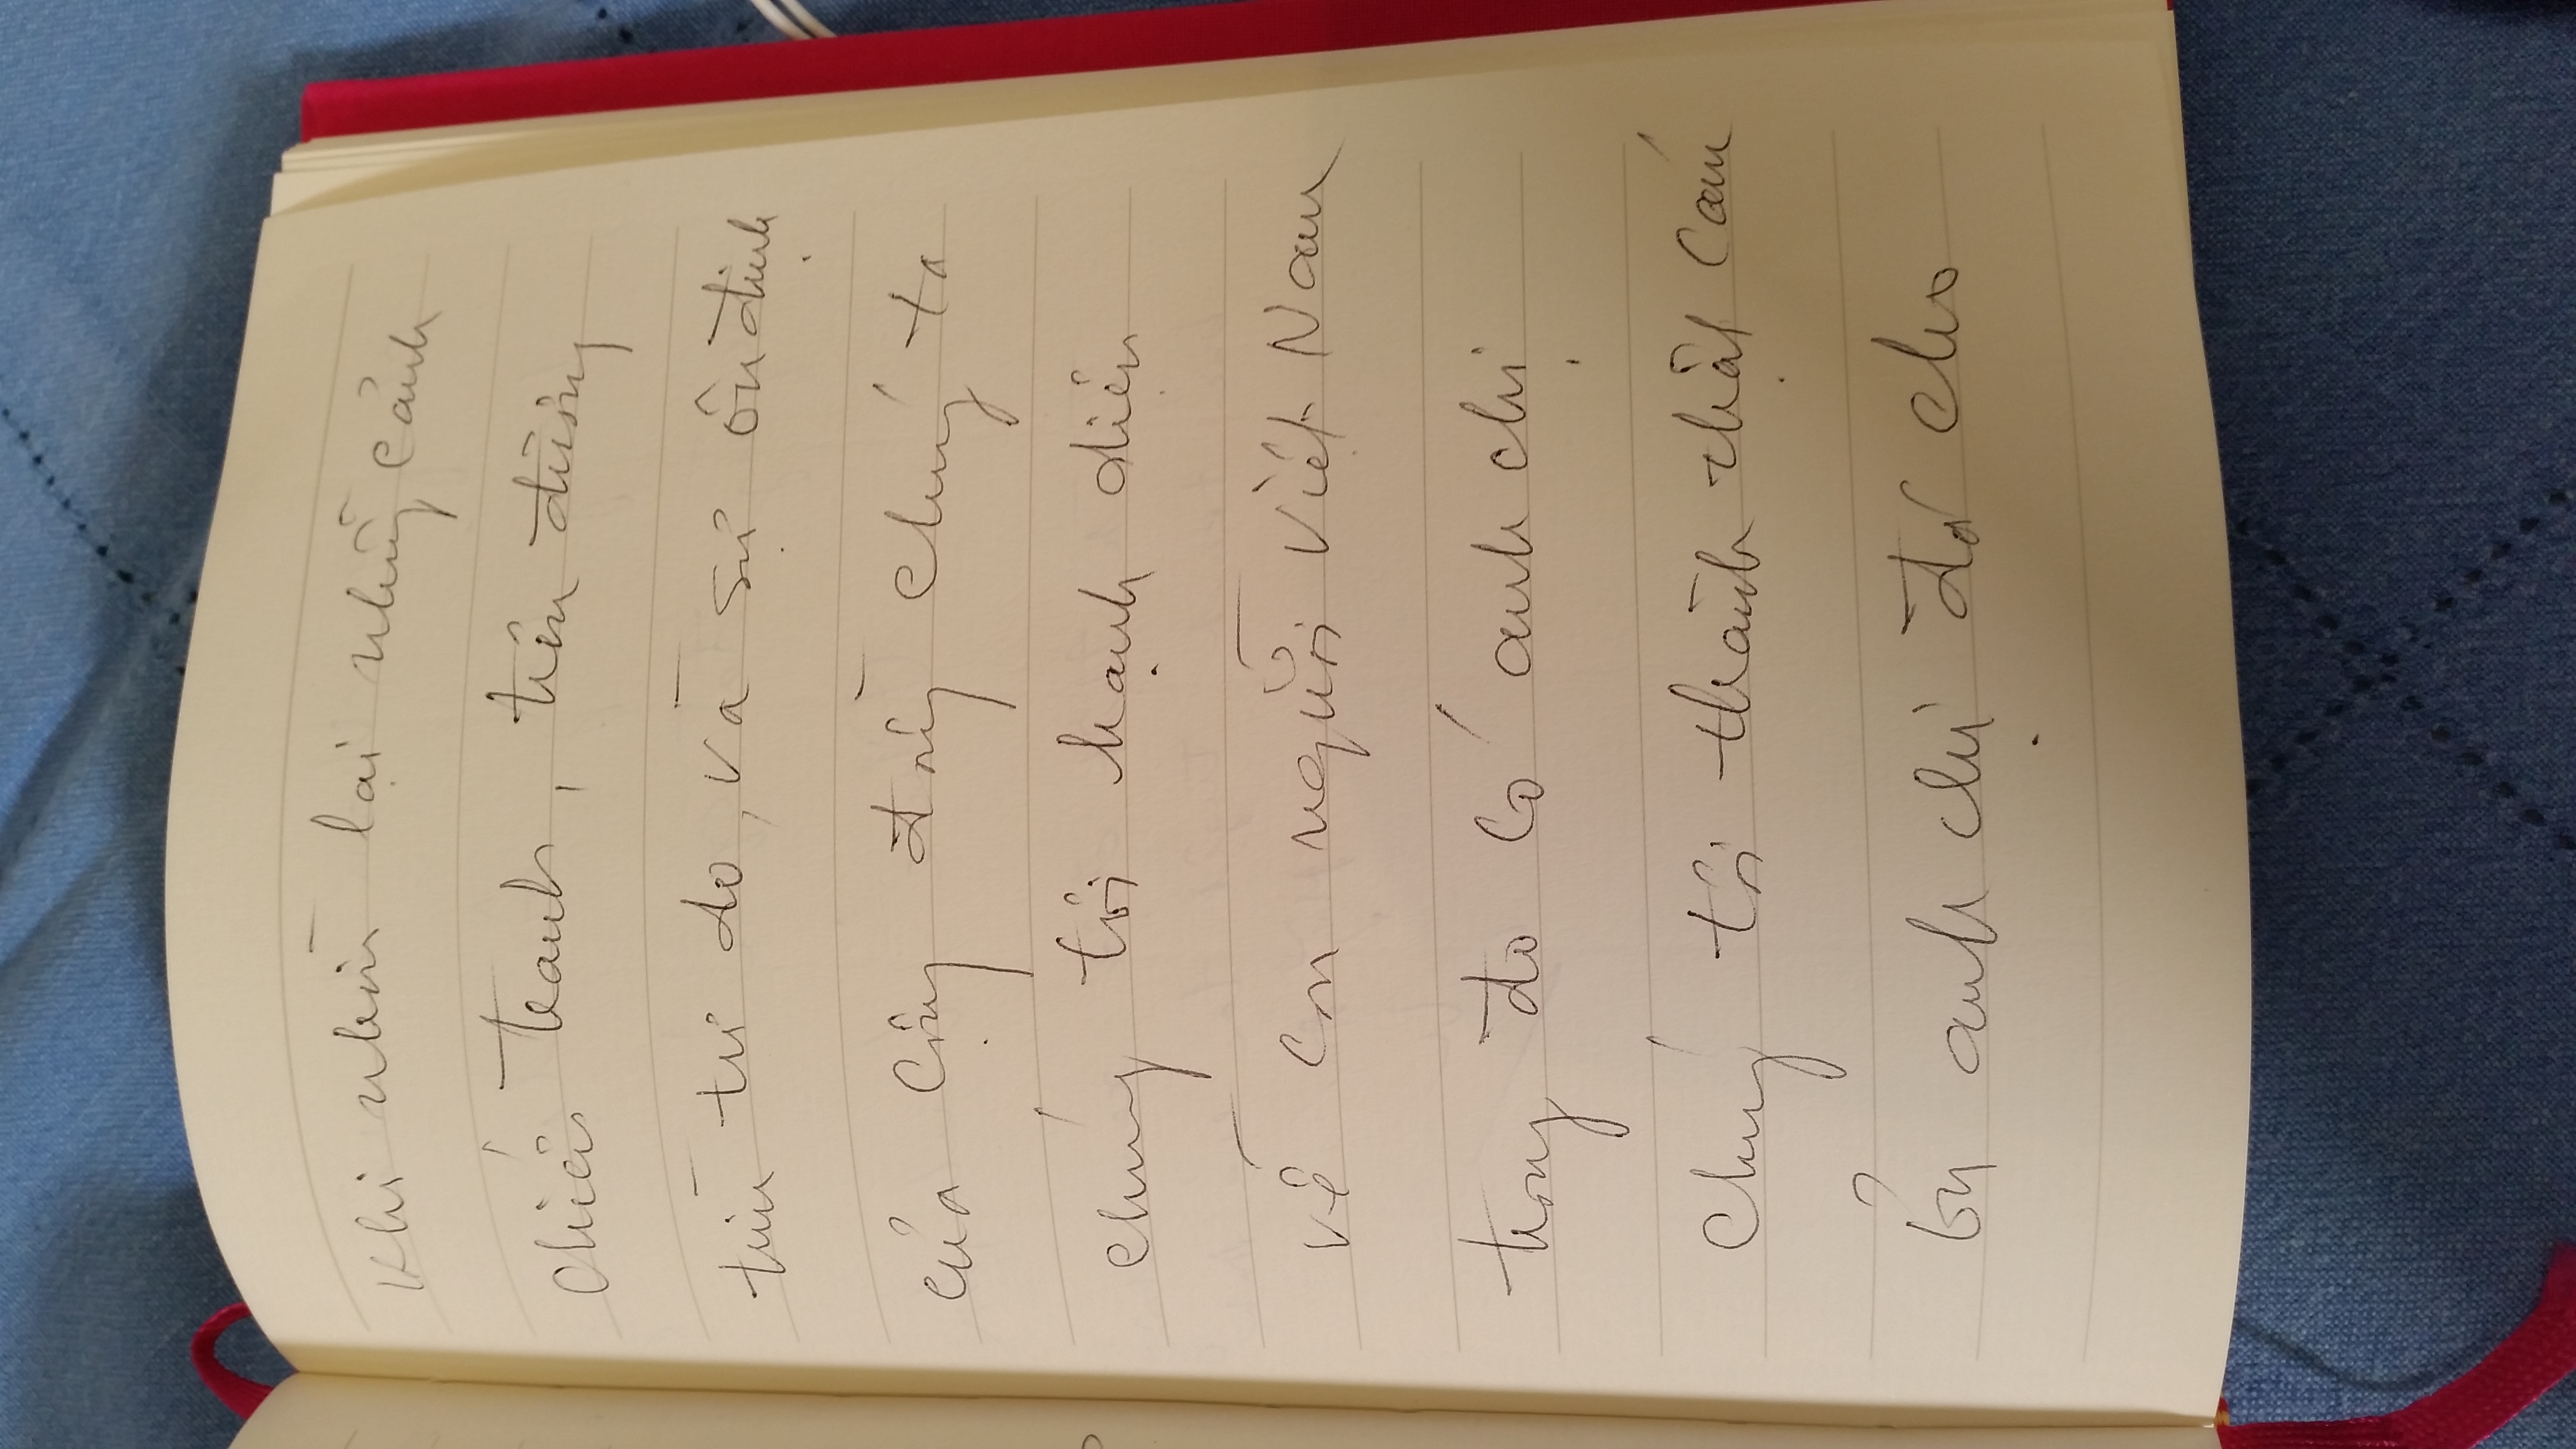 Khi nhìn lại những cảnh
chiến tranh, trên đường
tìm tự do, và sự ổn định
của cộng đồng chúng ta
chúng tôi hạnh diện
về con người Việt Nam
trong đo có anh chị
Chúng tôi thành thật Cám
ơn anh chị đã cho